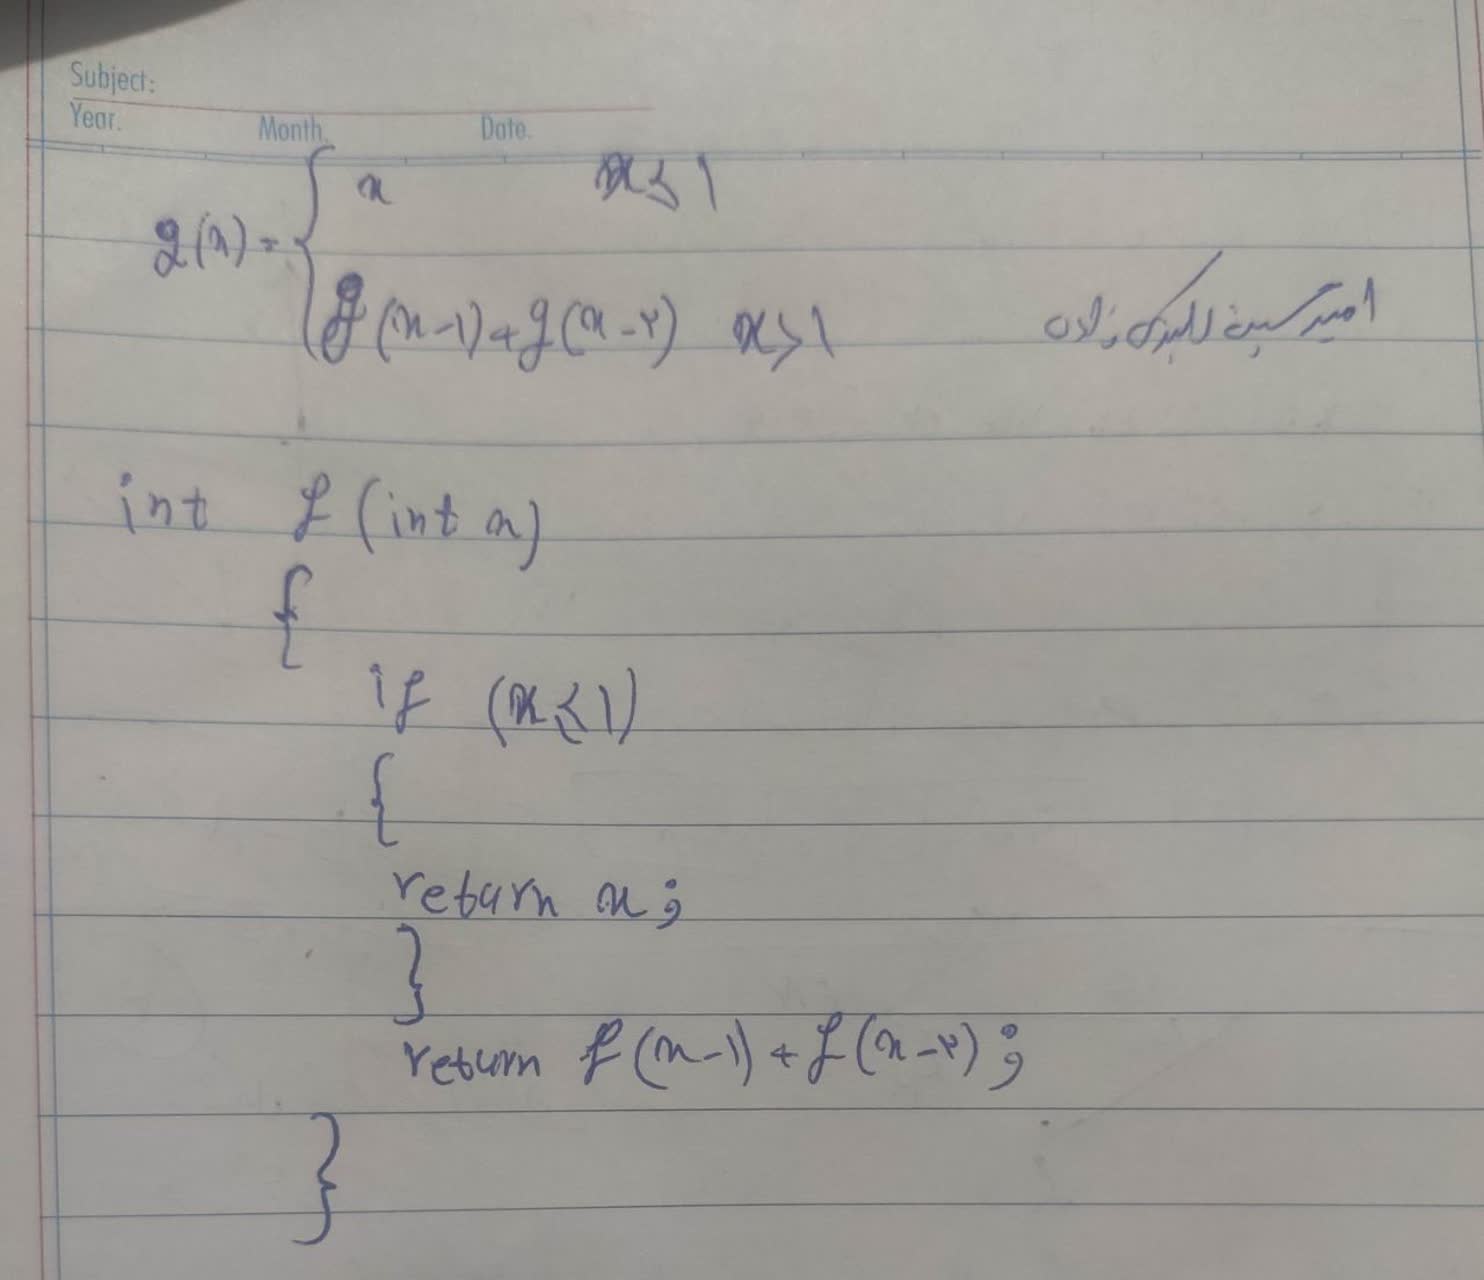 Subject:
Year. Month. Date.
g(x) = { x x ≤ ۱
g(x-۱) + g(x-۲) x > ۱
امیر حسین
int f (int x)
{
if (x ≤ ۱)
{
return x;
}
return f(x-۱) + f(x-۲);
}